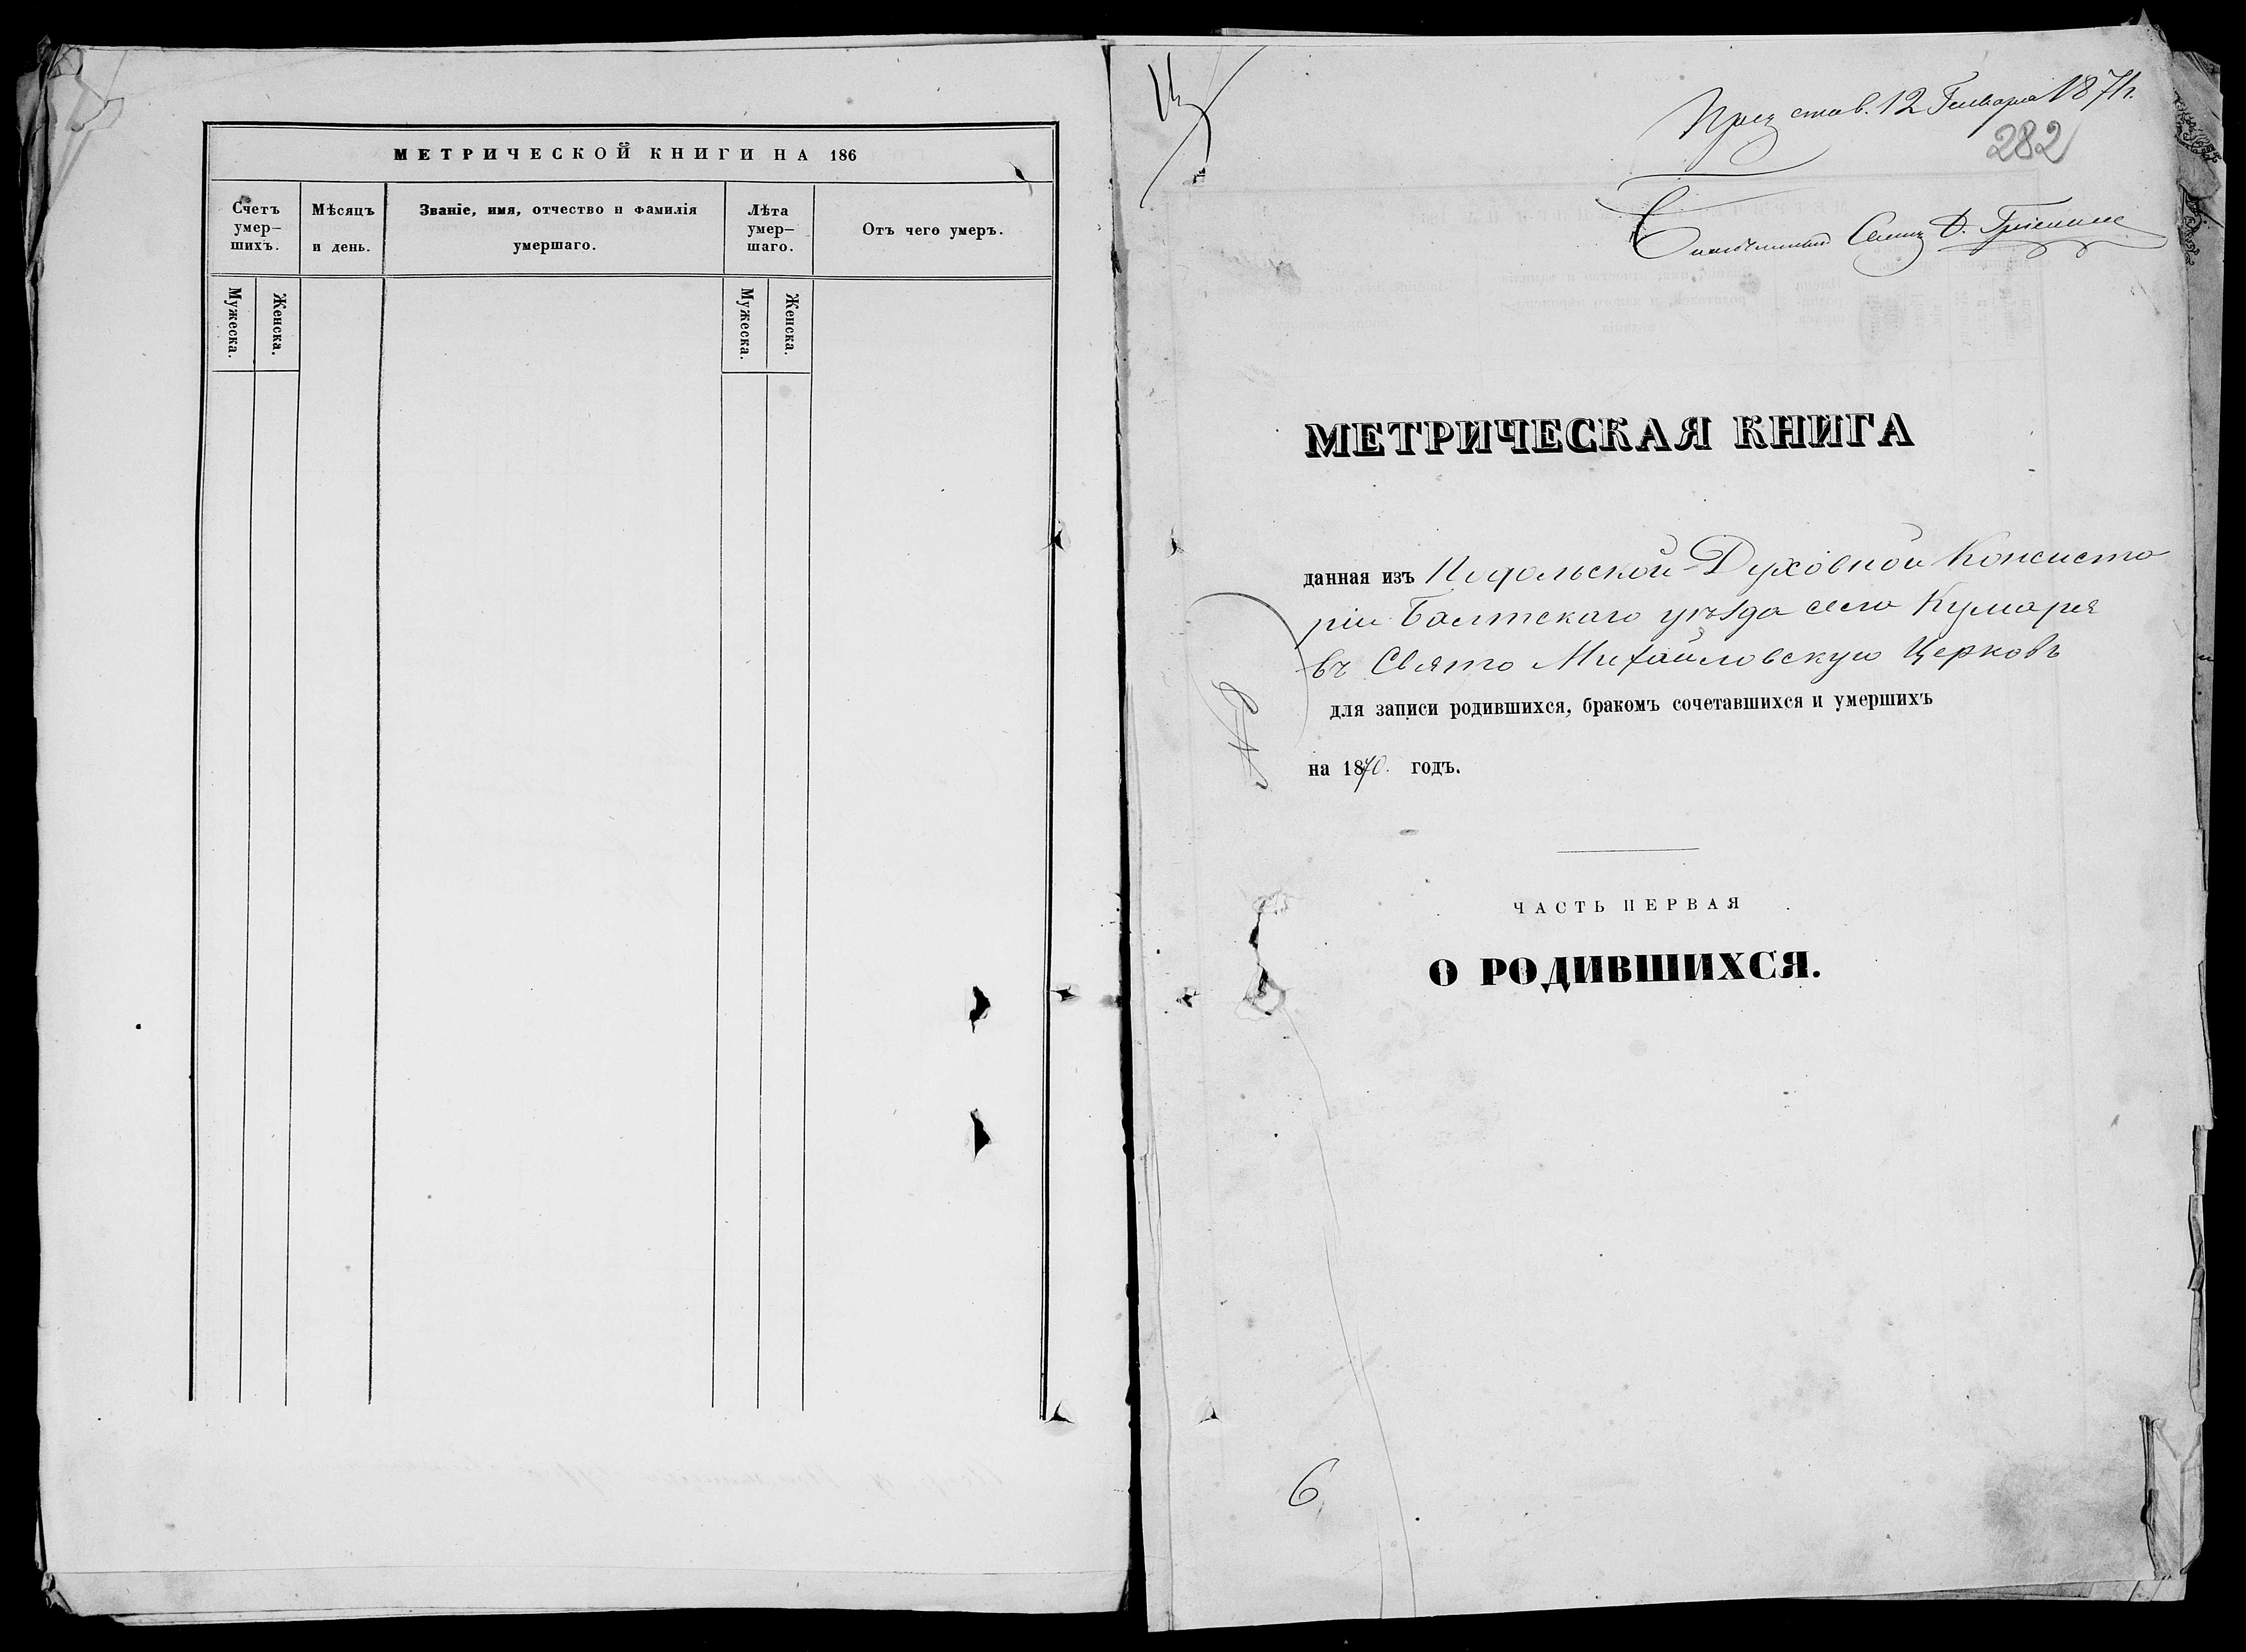 МЕТРИЧЕСКОЙ КНИГИ НА 186
Счетъ умер-шихъ.
Мѣсяцъ и день.
Званіе, имя, отчество и фамилія умершаго.
Лѣта умер-шаго.
Отъ чего умеръ.
Мужеска.
Женска.
Мужеска.
Женска.
Представ. 12 Генваря 1871 г.
282
МЕТРИЧЕСКАЯ КНИГА
данная изъ Подольской Духовной Консисто
ріи Балтскаго уѣзда села Кумаре
въ Свято Михайловскую Церковь
для записи родившихся, бракомъ сочетавшихся и умершихъ
на 1870. годъ.
ЧАСТЬ ПЕРВАЯ
О РОДИВШИХСЯ.
6